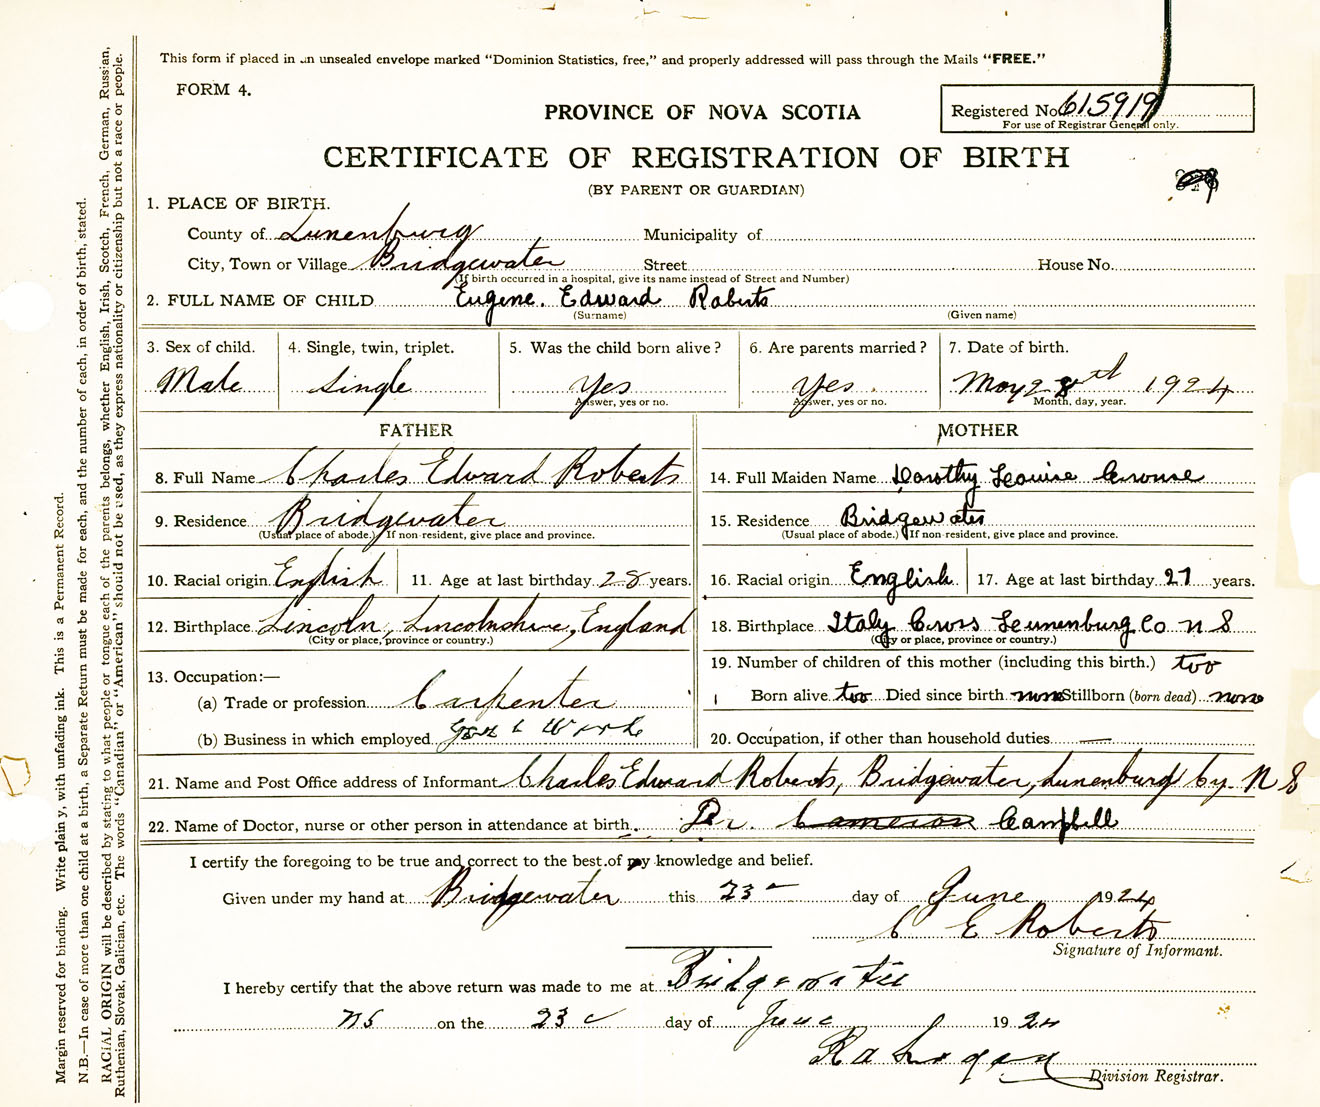 This form if placed in an unsealed envelope marked "Dominion Statistics, free," and properly addressed will pass through the Mails "FREE."
FORM 4.
PROVINCE OF NOVA SCOTIA
Registered No. 615919
For use of Registrar General only.
CERTIFICATE OF REGISTRATION OF BIRTH
(BY PARENT OR GUARDIAN)
1. PLACE OF BIRTH.
County of Lunenburg Municipality of
City, Town or Village Bridgewater Street House No.
(If birth occurred in a hospital, give its name instead of Street and Number)
2. FULL NAME OF CHILD Eugene Edward Roberts
(Surname) (Given name)
3. Sex of child. 4. Single, twin, triplet. 5. Was the child born alive? 6. Are parents married? 7. Date of birth.
Male Single Yes Yes May 28th 1924
Answer, yes or no. Answer, yes or no. Month, day, year.
FATHER MOTHER
8. Full Name Charles Edward Roberts 14. Full Maiden Name Dorothy Louise Crouse
9. Residence Bridgewater 15. Residence Bridgewater
(Usual place of abode.) If non-resident, give place and province. (Usual place of abode.) If non-resident, give place and province.
10. Racial origin English 11. Age at last birthday 28 years. 16. Racial origin English 17. Age at last birthday 27 years.
12. Birthplace Lincoln, Lincolnshire, England 18. Birthplace Italy Cross Lunenburg Co N S
(City or place, province or country.) (City or place, province or country.)
13. Occupation:— 19. Number of children of this mother (including this birth.) too
(a) Trade or profession Carpenter Born alive too Died since birth none Stillborn (born dead) none
(b) Business in which employed Work 20. Occupation, if other than household duties —
21. Name and Post Office address of Informant Charles Edward Roberts, Bridgewater, Lunenburg Cy. N S
22. Name of Doctor, nurse or other person in attendance at birth. Dr. Cameron Campbell
I certify the foregoing to be true and correct to the best of my knowledge and belief.
Given under my hand at Bridgewater this 23 day of June 1924
C E Roberts
Signature of Informant.
I hereby certify that the above return was made to me at Bridgewater
NS on the 23 day of June 1924
Division Registrar.
Margin reserved for binding. Write plainly, with unfading ink. This is a Permanent Record.
N.B.—In case of more than one child at a birth, a Separate Return must be made for each, and the number of each, in order of birth, stated.
RACIAL ORIGIN will be described by stating to what people or tongue each of the parents belongs, whether English, Irish, Scotch, French, German, Russian,
Ruthenian, Slovak, Galician, etc. The words "Canadian" or "American" should not be used, as they express nationality or citizenship but not a race or people.